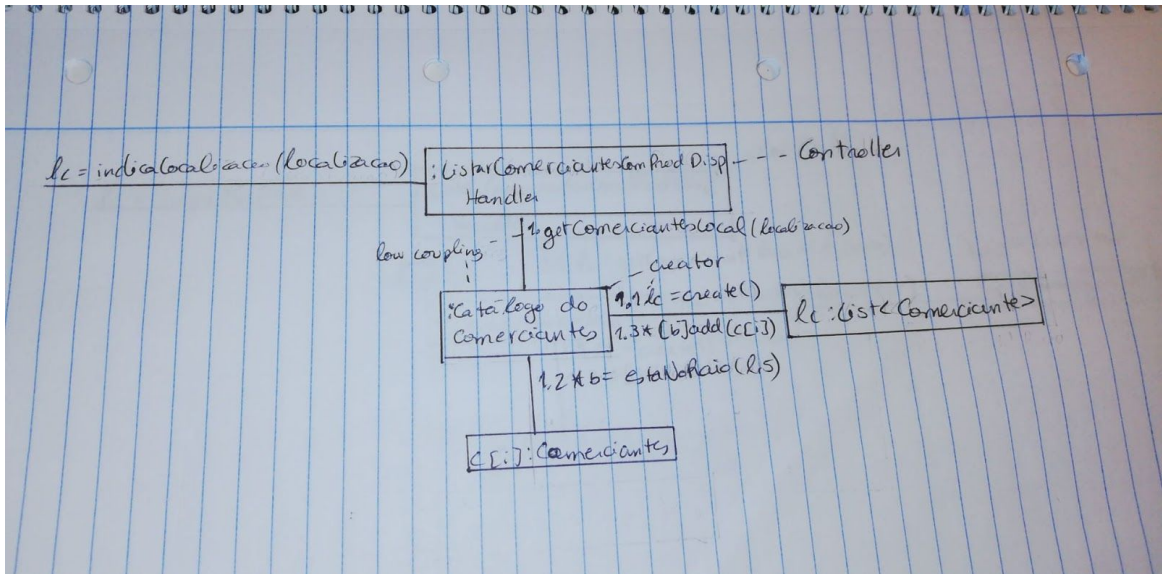 lc = indicaLocalizacao (localizacao)
:ListarComerciantesComProdDisp
Handler
- - - Controller
1. getComerciantesLocal (localizacao)
low coupling -
:Catálogo do
comerciantes
creator
1.1 lc = create()
1.3* [b]add(c[i])
lc : List<Comerciante>
1.2 * b = estaNoRaio(l,5)
c[i]: Comerciantes